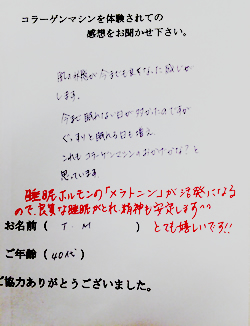 コラーゲンマシンを体験されての
感想をお聞かせ下さい。
肌の状態が今までも良くなった感じが
します。
今まで眠れない日が多かったのですが
ぐっすりと眠れる日も増え
これもコラーゲンマシンのおかげかな？と
思っています。
睡眠ホルモンの「メラトニン」が活発になる
ので、良質な睡眠がとれ、精神も安定します^^
お名前（ T.M ）とても嬉しいです!!
ご年齢（40代）
ご協力ありがとうございました。